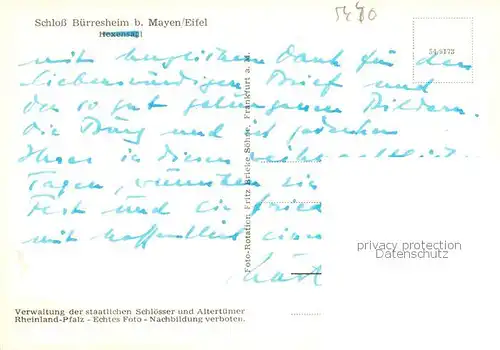 5440
Schloß Bürresheim b. Mayen/Eifel
Hexensaal
545173
mit herzlichem Dank für den
liebenswürdigen Brief und
die so gut gelungenen Bildern.
die Burg und ich gedenken
Ihrer in diesen weihnachtlichen
Tagen, wünschen ein
Fest und ein fried
mit hoffentlich einem
Foto-Rotation Fritz Brieke Söhne, Frankfurt a. M.
privacy protection
Datenschutz
Verwaltung der staatlichen Schlösser und Altertümer
Rheinland-Pfalz - Echtes Foto - Nachbildung verboten.